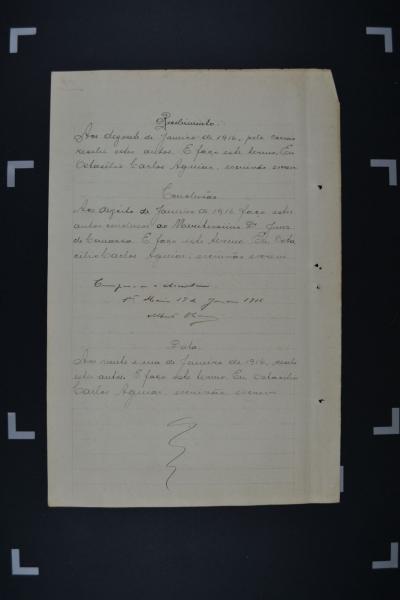 Recebimento.
Aos dezoito de Janeiro de 1916, pelo correio
recebi estes autos. E faço este termo. Eu
Octacilio Carlos Aguiar, escrivão escrevi
Conclusão
Aos dezoito de Janeiro de 1916 faço estes
autos conclusos ao Meretissimo Dr. Juiz
de Comarca. E faço este termo. Eu Octa
cilio Carlos Aguiar, escrivão escrevi
de Janeiro 1916
Data
Aos vinte e um de Janeiro de 1916, recebi
estes autos. E faço este termo. Eu Octacilio
Carlos Aguiar, escrivão escrevi